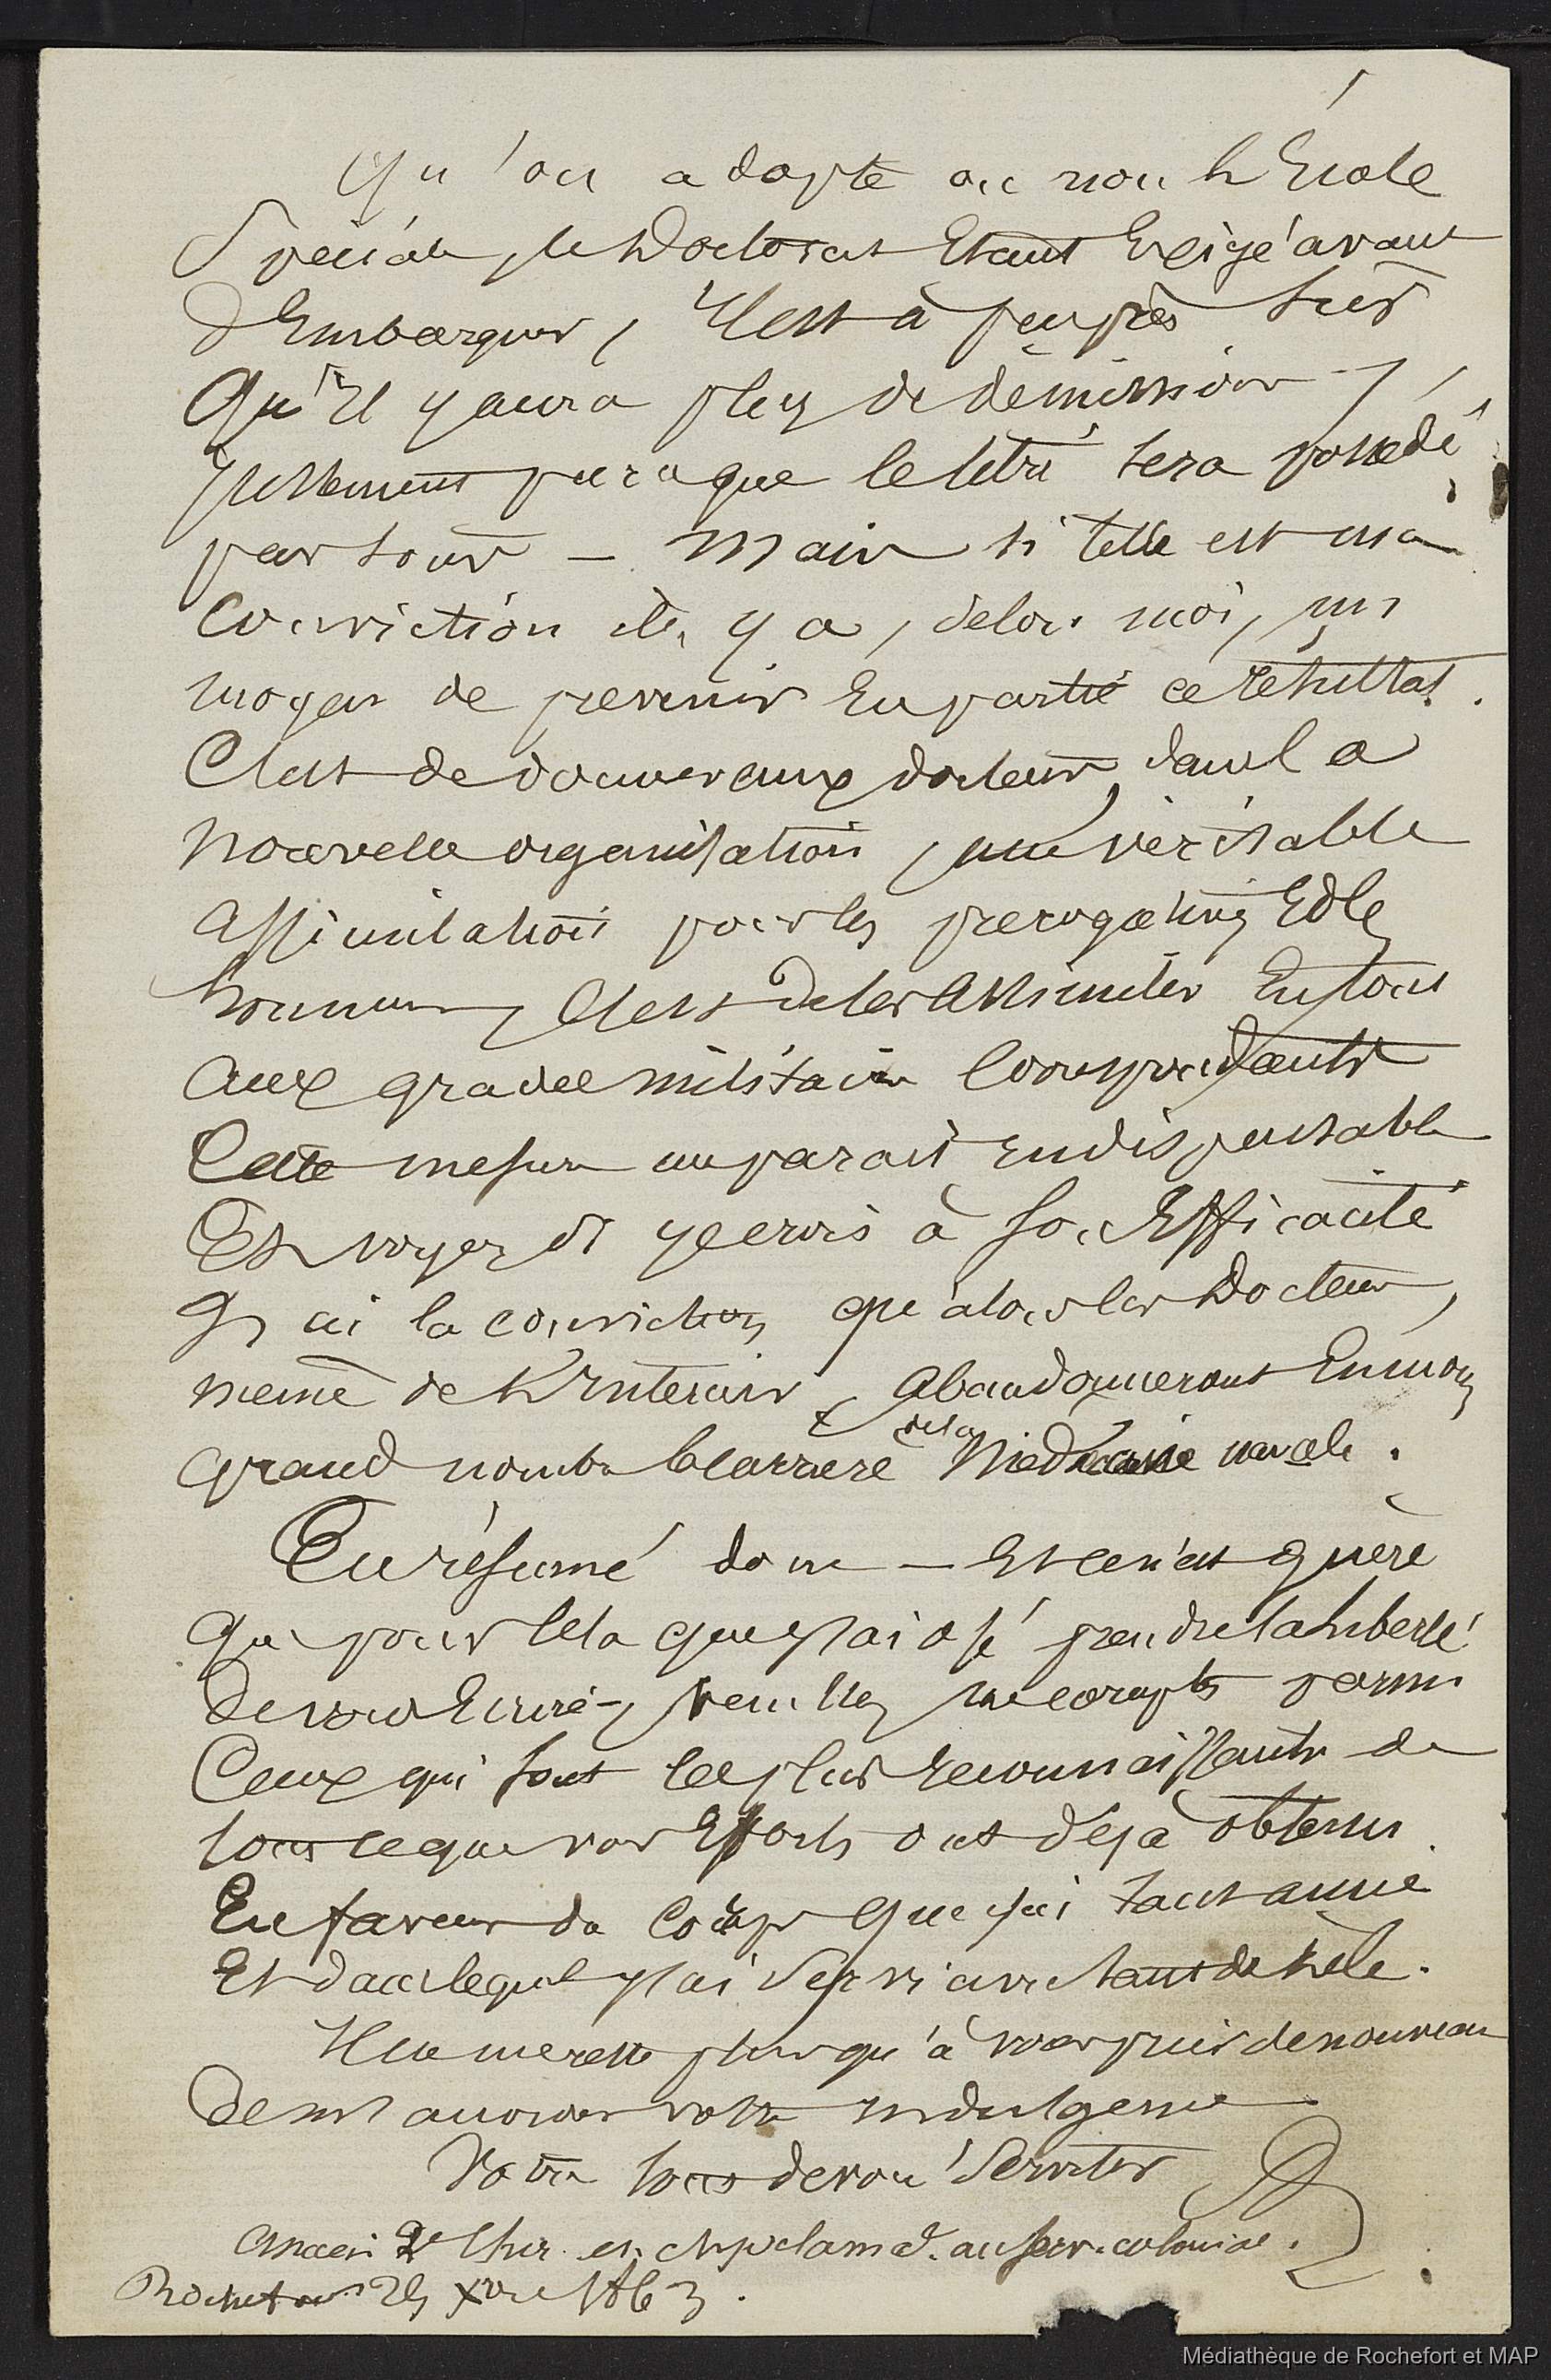 Qu'on adopte ou non l'Ecole
Spéciale, le Doctorat Etant Exigé avant
d'Embarquer, Il est à peu près sûr
Qu'Il y aura plus de démissions,
justement parceque le titre sera possédé
par tous — Mais si telle est ma
Conviction il y a, selon moi, un
moyen de prevenir En partie ce résultat.
C'est de donner aux docteurs, dans la
Nouvelle organisation, une véritable
Assimilation pour les prerogatives Et les
honneurs, C'est de les Assimiler En tout
aux grades militaires Correspondants
Cette mesure me parait Indispensable
Et voyez si je crois à son Efficacité
J'ai la conviction qu'alors les Docteurs,
meme de l'Interieur, Abandonneront En moins
grand nombre la carriere de la Médecine navale.
En résumé donc — Et ce n'est guère
Que pour cela que j'ai osé prendre la liberté
De vous Ecrire — veuillez me compter parmi
Ceux qui sont les plus Reconnaissants de
tout ce que vos Efforts ont déjà obtenu
En faveur du Corps Que j'ai tant aimé
Et dans lequel j'ai Servi avec tant de zèle.
Il ne me reste plus qu'à vous prier de nouveau
De m'accorder votre Indulgence
Votre tout devoué Serviteur
Ancien 2e Chir. au serv. colonial.
Rochefort 25 Xbre 1863.
Médiathèque de Rochefort et MAP